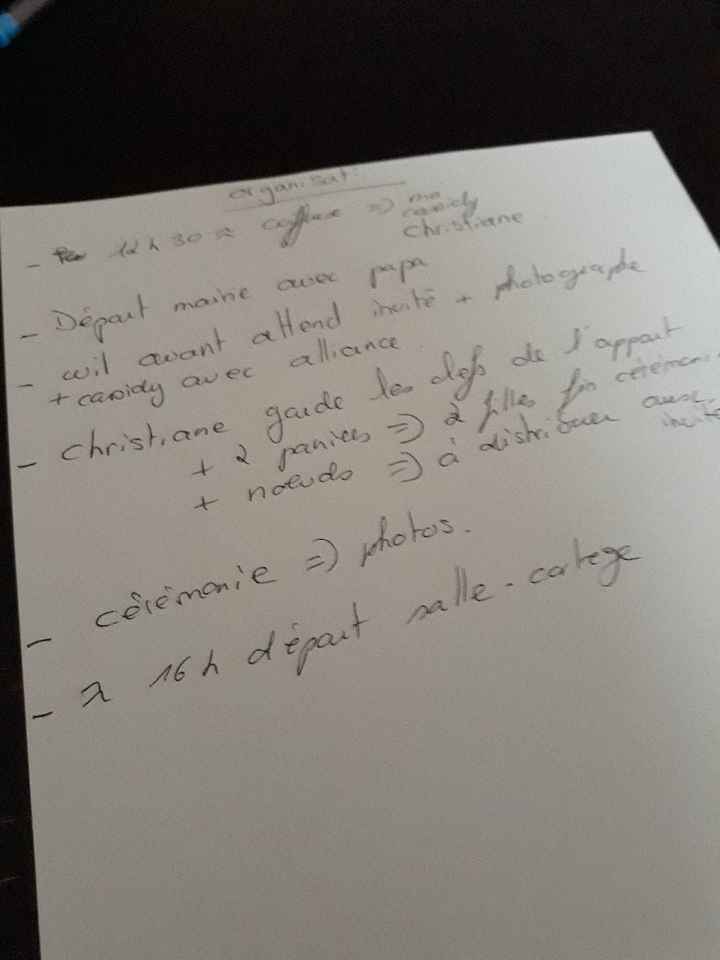 organisat:
- 12h30 ≈ coiffure => ma
cassidy
christiane
- Départ mairie avec papa
- wil avant attend invité + photographe
+ cassidy avec alliance
- christiane garde les clefs de l'appart
+ 2 paniers => 2 filles fin cérémonie
+ noeuds => à distribuer aux
invités
- cérémonie => photos.
- 16h départ salle - cortege